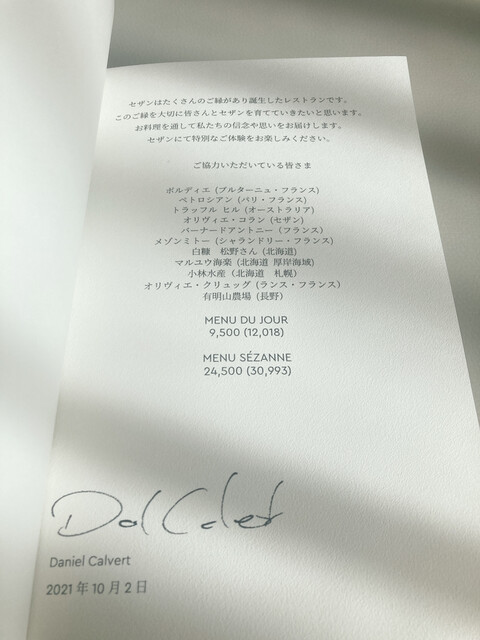 セザンはたくさんのご縁があり誕生したレストランです。
このご縁を大切に皆さんとセザンを育てていきたいと思います。
お料理を通して私たちの信念や思いをお届けします。
セザンにて特別なご体験をお楽しみください。
ご協力いただいている皆さま
ボルディエ (ブルターニュ・フランス)
ペトロシアン (パリ・フランス)
トラッフル ヒル (オーストラリア)
オリヴィエ・コラン (セザン)
バーナードアントニー (フランス)
メゾンミトー (シャランドリー・フランス)
白糠 松野さん (北海道)
マルユウ海楽 (北海道 厚岸海域)
小林水産 (北海道 札幌)
オリヴィエ・クリュッグ (ランス・フランス)
有明山農場 (長野)
MENU DU JOUR
9,500 (12,018)
MENU SÉZANNE
24,500 (30,993)
Daniel Calvert
2021 年 10 月 2 日